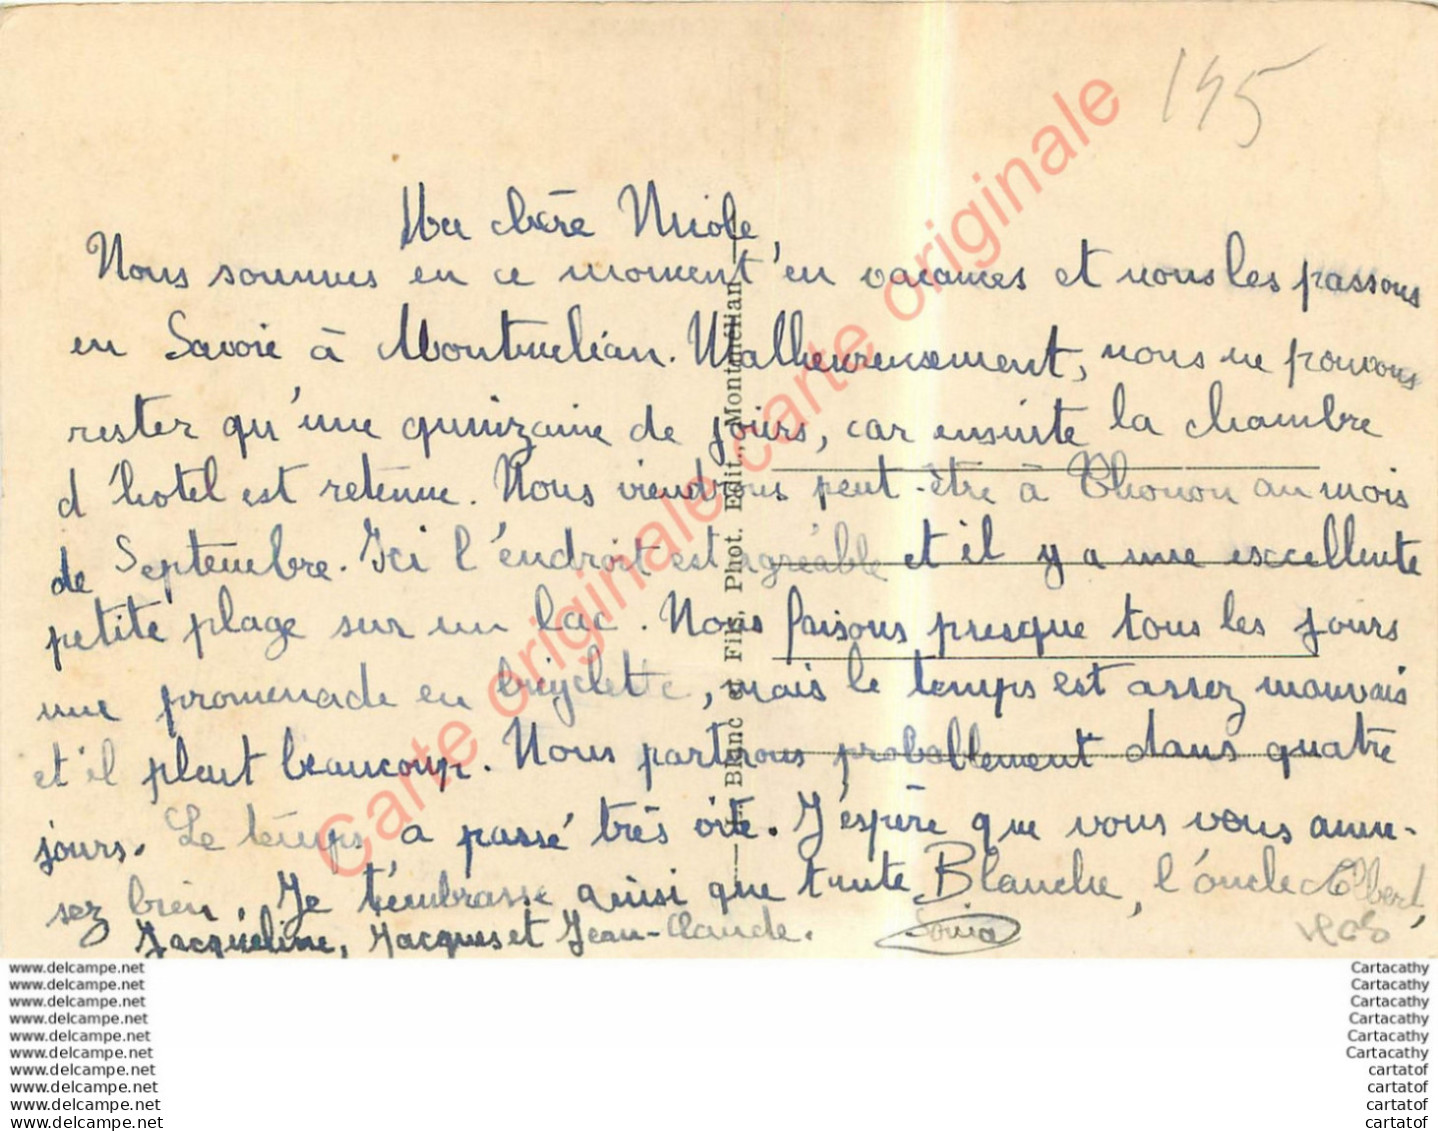 195
Ma chère Nicole,
Nous sommes en ce moment en vacances et nous les passons
en Savoie à Montmélian. Malheureusement, nous ne pouvons
rester qu'une quinzaine de jours, car ensuite la chambre
d'hôtel est retenue. Nous viendrons peut-être à Thonon au mois
de Septembre. Ici l'endroit est agréable et il y a une excellente
petite plage sur un lac. Nous faisons presque tous les jours
une promenade en bicyclette, mais le temps est assez mauvais
et il pleut beaucoup. Nous partirons probablement dans quatre
jours. Le temps a passé très vite. J'espère que vous vous amu-
sez bien. Je t'embrasse ainsi que tante Blanche, l'oncle Albert,
Jacqueline, Jacques et Jean-Claude. Sonia
Blanc et Fils, Phot. Edit., Montmélian
Carte originale carte originale
www.delcampe.net Cartacathy
www.delcampe.net Cartacathy
www.delcampe.net Cartacathy
www.delcampe.net Cartacathy
www.delcampe.net Cartacathy
www.delcampe.net Cartacathy
www.delcampe.net cartatof
www.delcampe.net cartatof
www.delcampe.net cartatof
www.delcampe.net cartatof